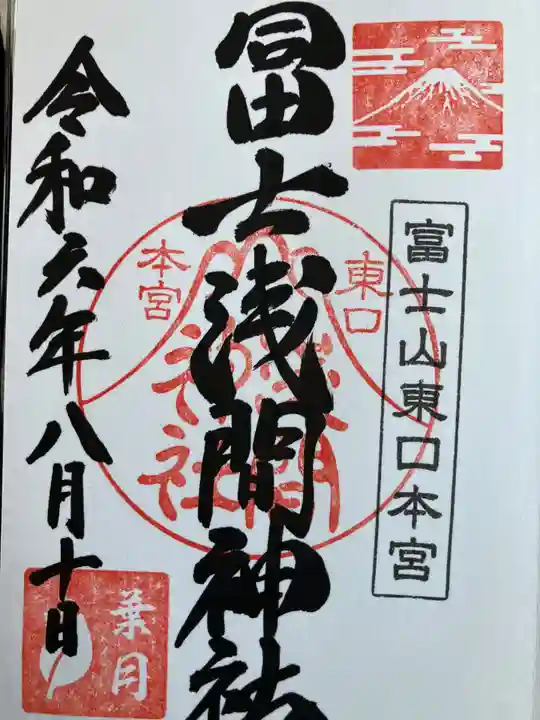 富士山東口本宮
冨士浅間神社
東口
本宮
浅間
神社
令和六年八月十日
葉月